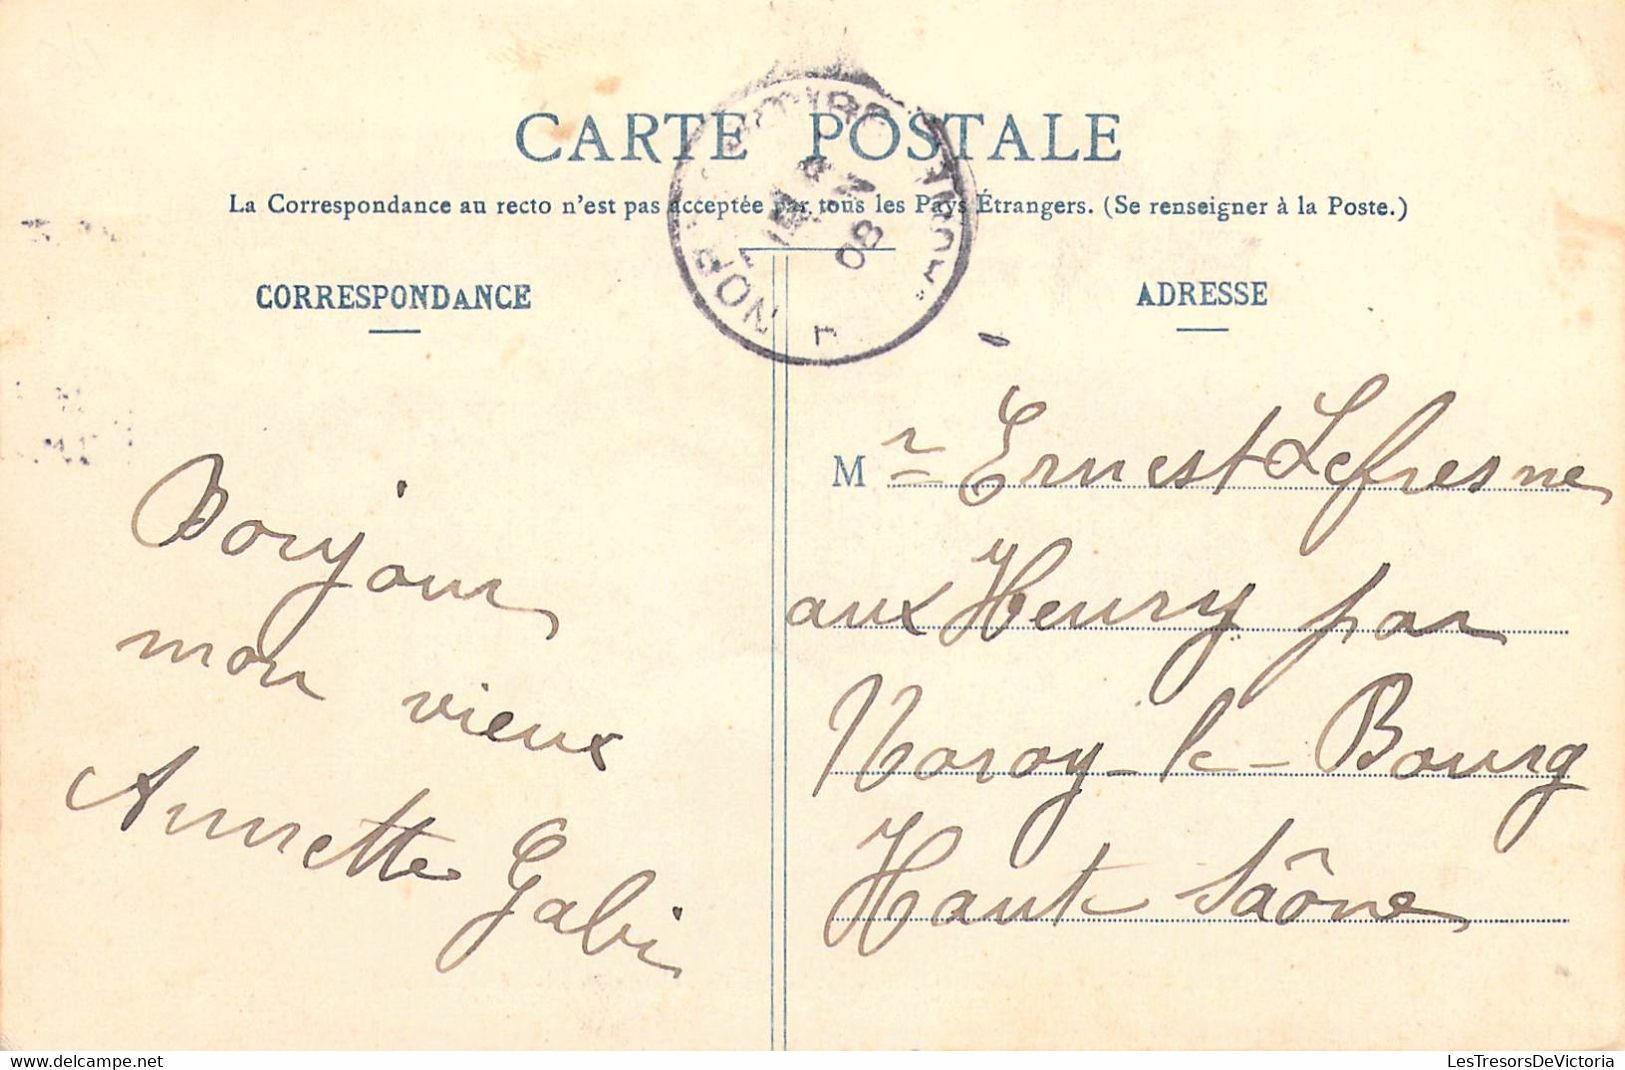 CARTE POSTALE
La Correspondance au recto n'est pas acceptée par tous les Pays Étrangers. (Se renseigner à la Poste.)
CORRESPONDANCE
Bonjour
mon vieux
Annette Gabi
ADRESSE
Mr Ernest Lefresne
aux Heury par
Noroy-le-Bourg
Haute Saône
08
www.delcampe.net
LesTresorsDeVictoria